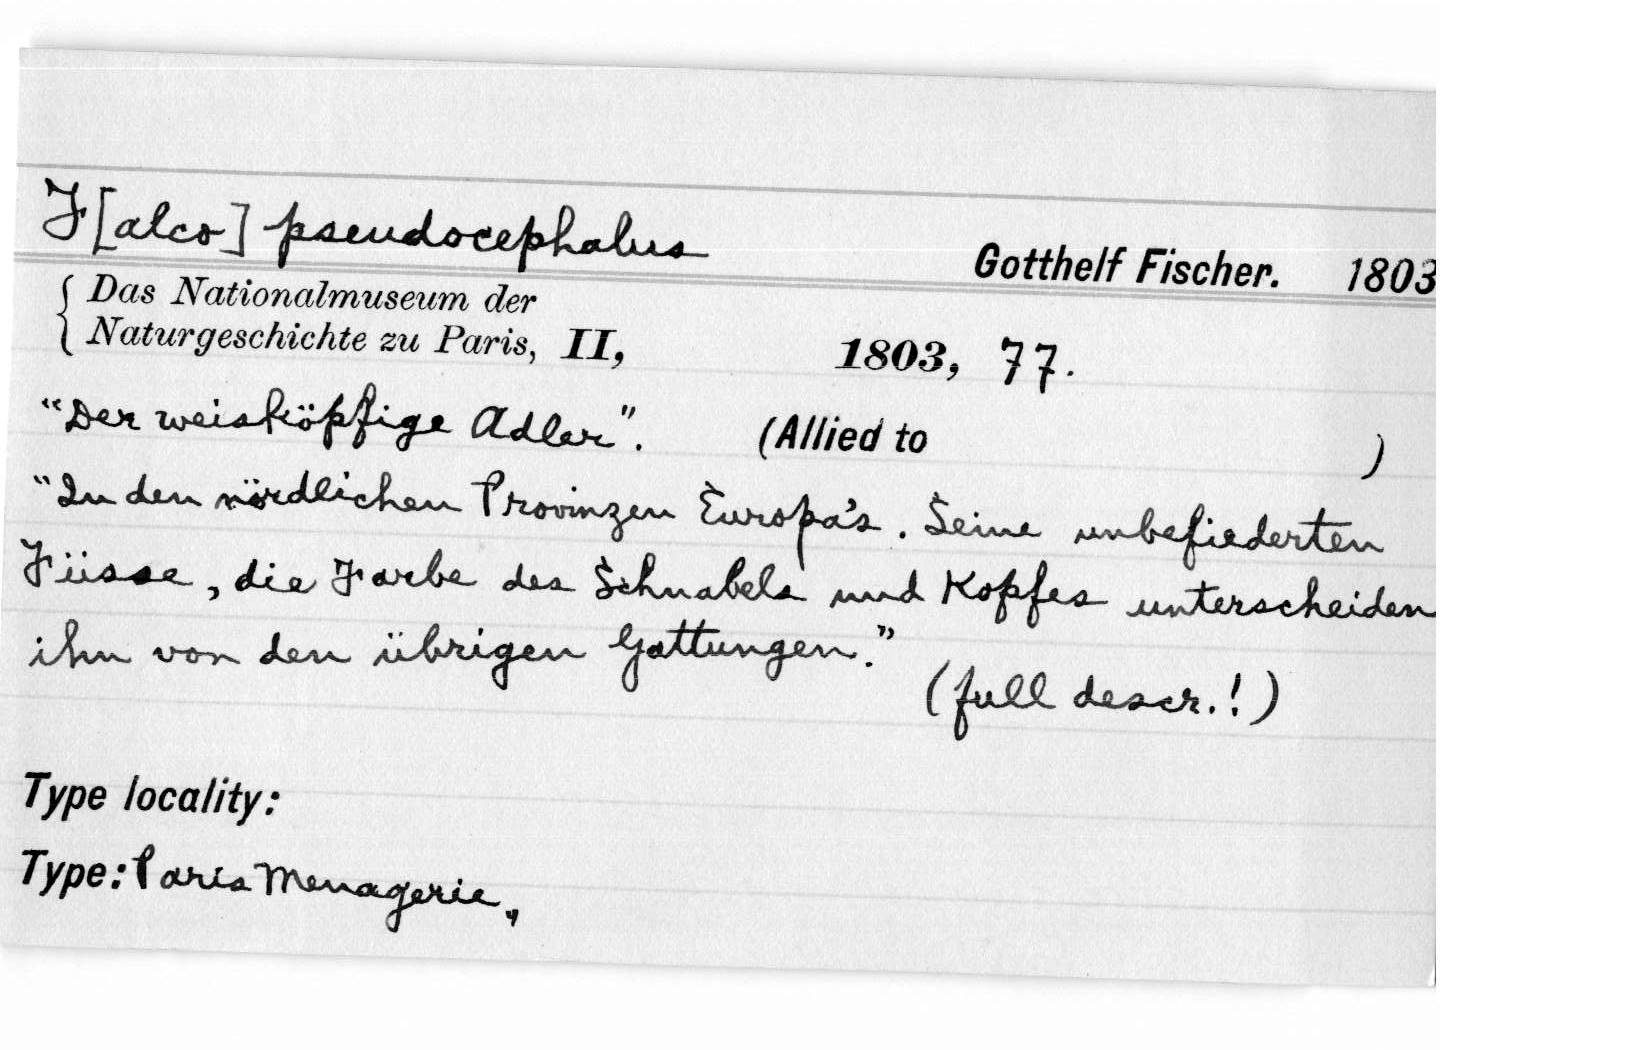 F[alco] pseudocephalus
Gotthelf Fischer. 1803
Das Nationalmuseum der
Naturgeschichte zu Paris, II, 1803, 77.
"Der weisköpfige Adler". (Allied to )
"In den nördlichen Provinzen Europa's. Seine unbefiederten
Füsse, die Farbe des Schnabels und Kopfes unterscheiden
ihn von den übrigen Gattungen."
(full descr.!)
Type locality:
Type: Paris Menagerie,,